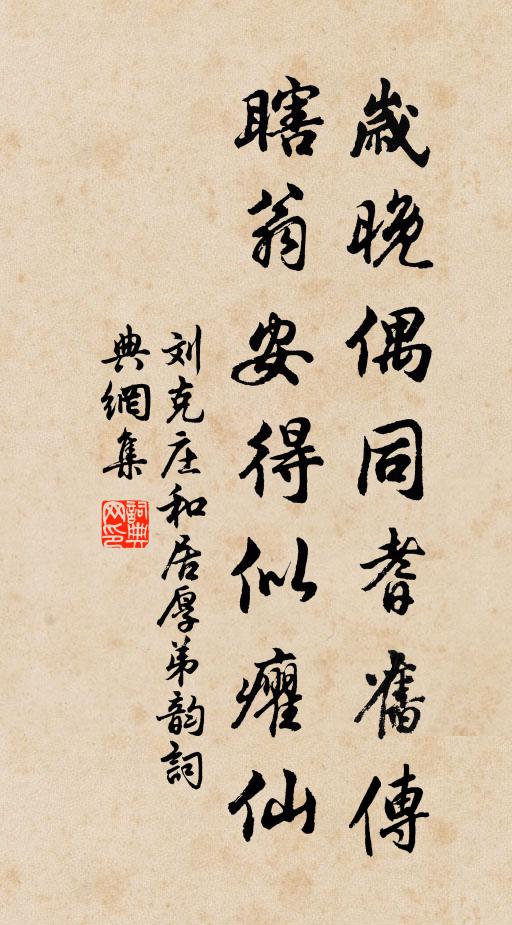 歲晚偶同耆舊傳
瞎翁安得似癯仙
刘克庄和居厚弟韵詞
典網集
詞典
网印